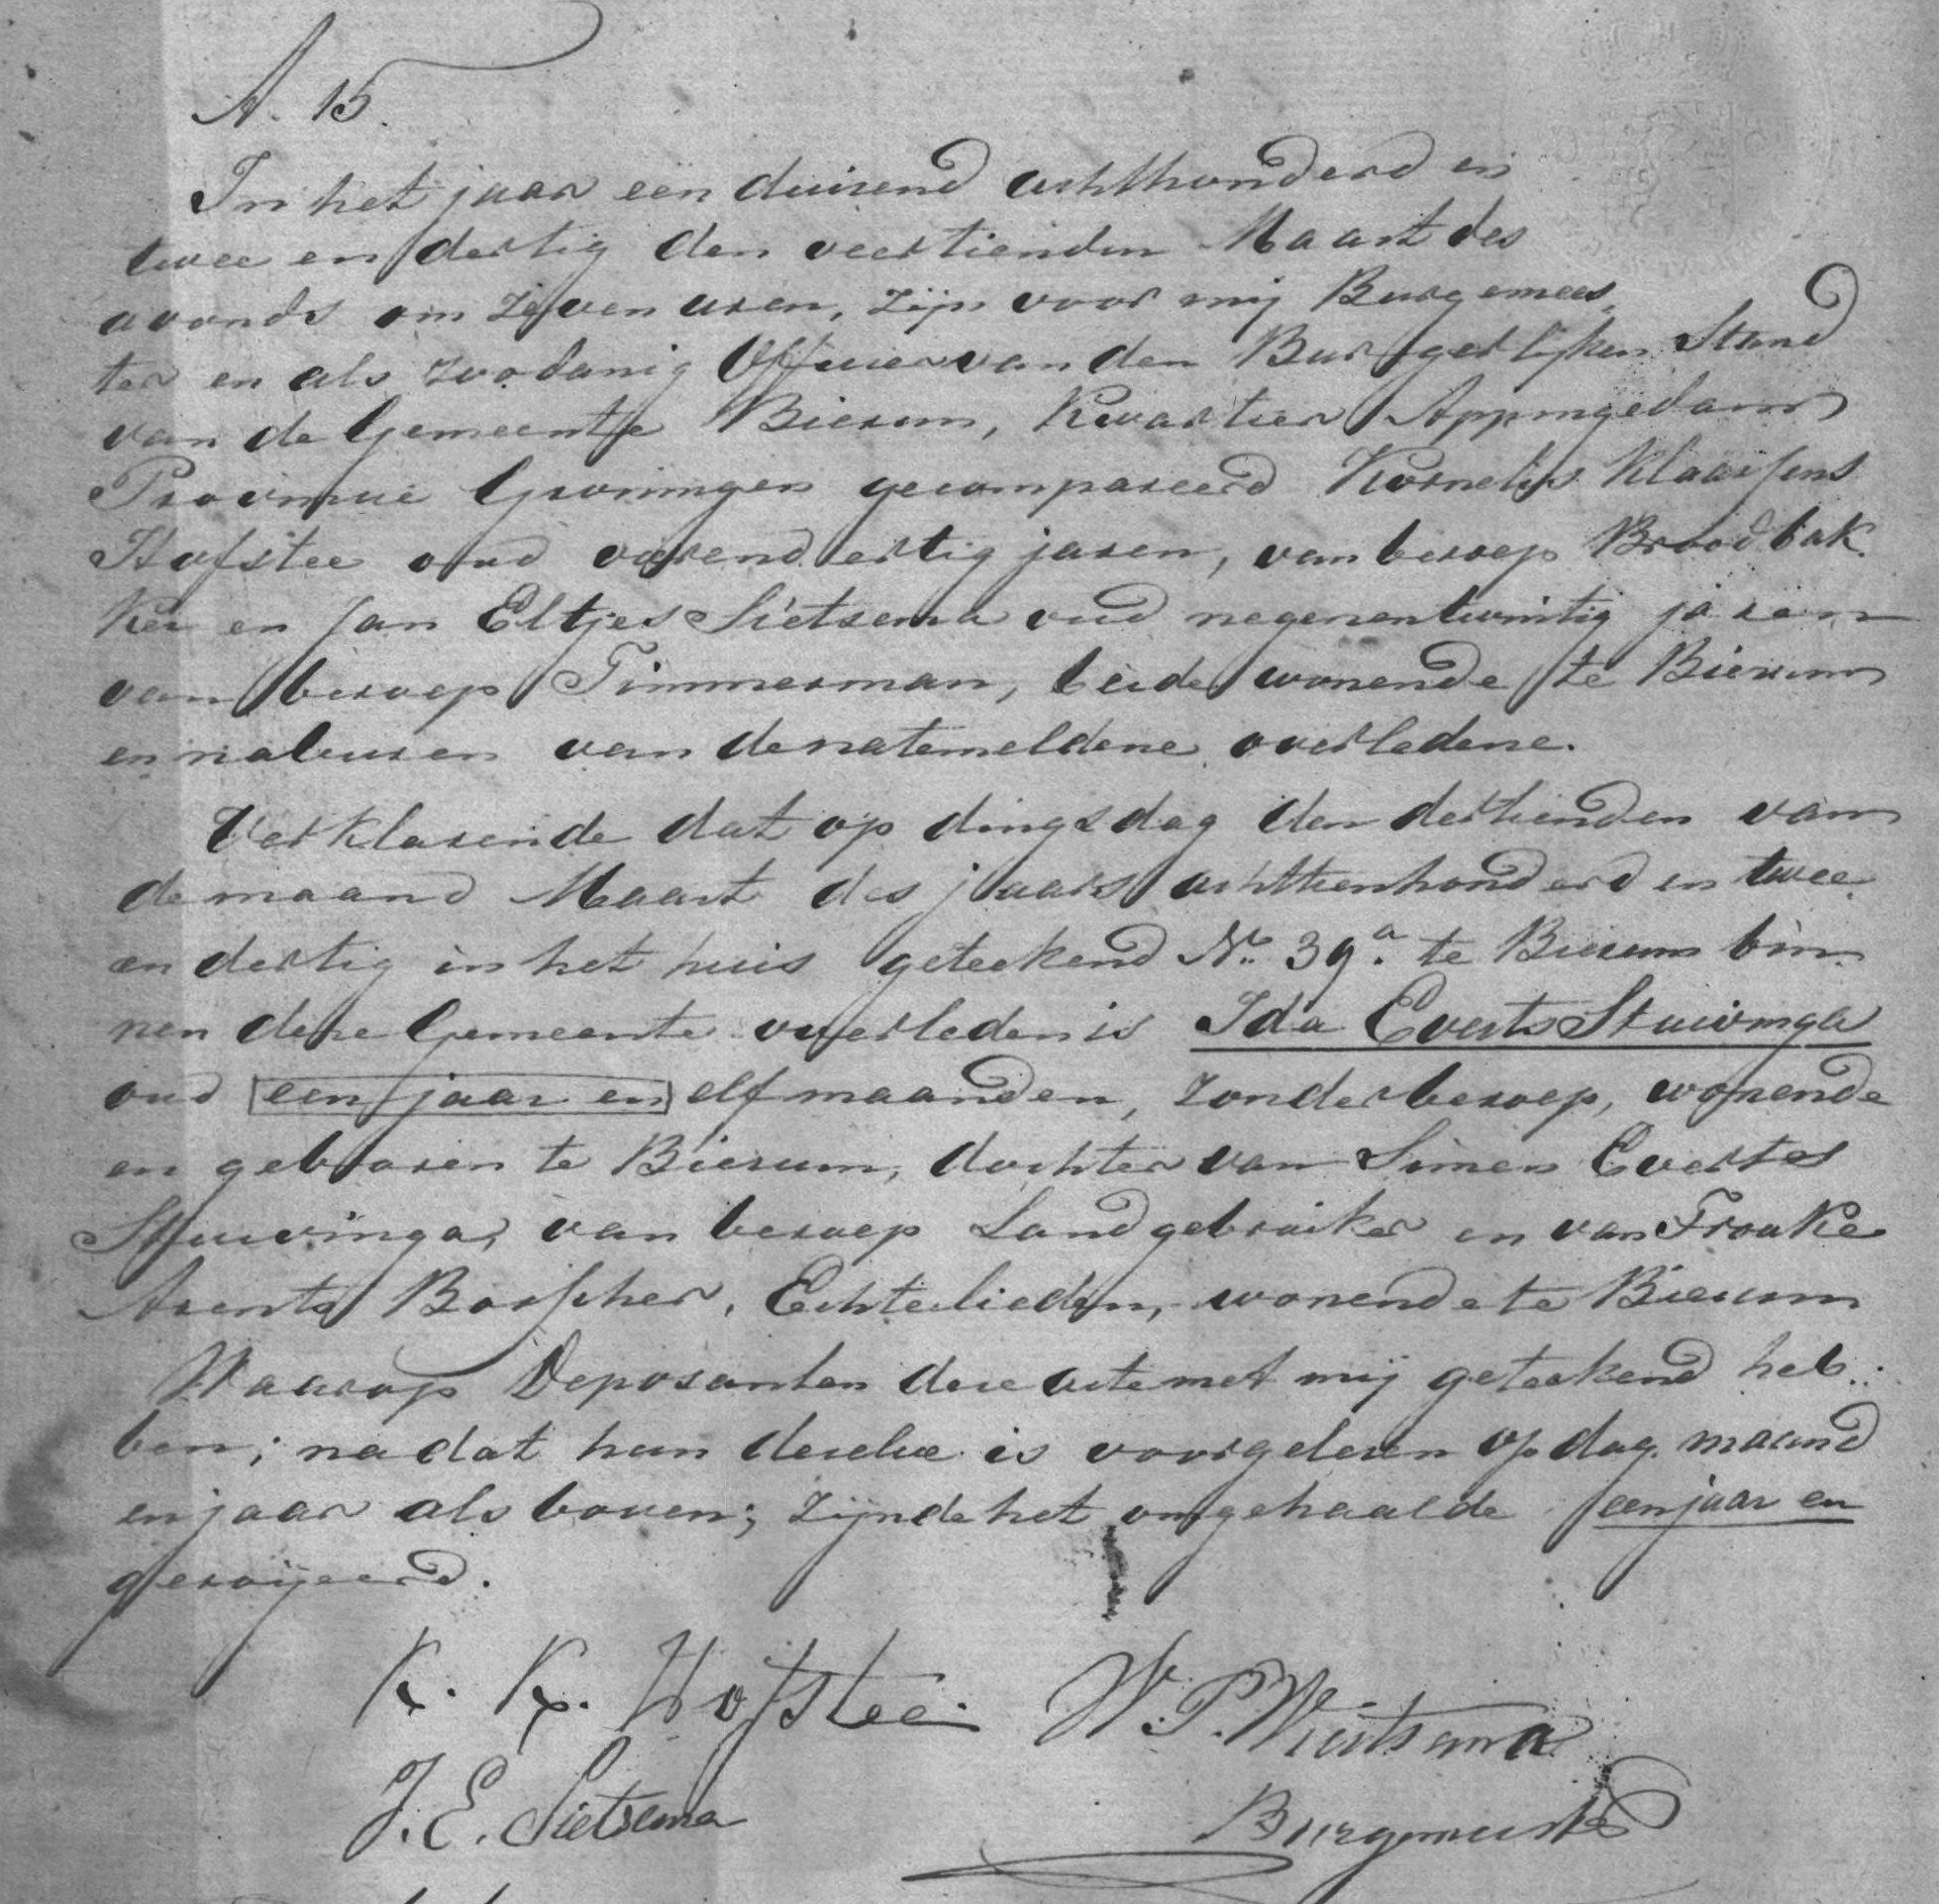 N. 15.
In het jaar een duizend achthonderd en
twee en dertig den veertienden Maart des
avonds om zeven uren, zijn voor mij Burgemees
ter en als zoodanig Officier van den Burgerlijken Stand
van de Gemeente Bierum, Kwartier Appingedam
Provincie Groningen gecompareerd Kornelis Klaassens
Hofstee oud vierendertig jaren, van beroep Broodbak
ker en Jan Eltjes Sietsema oud negenentwintig jaren
van beroep Timmerman, beide wonende te Bierum
en naburen van de natemeldene overledene.
Verklarende dat op dingsdag den dertienden van
de maand Maart des jaars achttienhonderd en twee
en dertig in het huis geteekend No. 39a. te Bierum bin
nen deze Gemeente overleden is Ida Everts Stuivinga
oud een jaar en elf maanden, zonder beroep, wonende
en geboren te Bierum, dochter van Simen Evertes
Stuivinga, van beroep Landgebruiker en van Frouke
Arents Bosscher, Echtelieden, wonende te Bierum
Waarop Deposanten deze acte met mij geteekend heb..
ben; na dat hun dezelve is voorgelezen op dag, maand
en jaar als boven; zijnde het omgehaalde een jaar en
geroijeerd.
K. K. Hofstee. W. P. Wiertsema
J. E. Sietsema Burgemeester